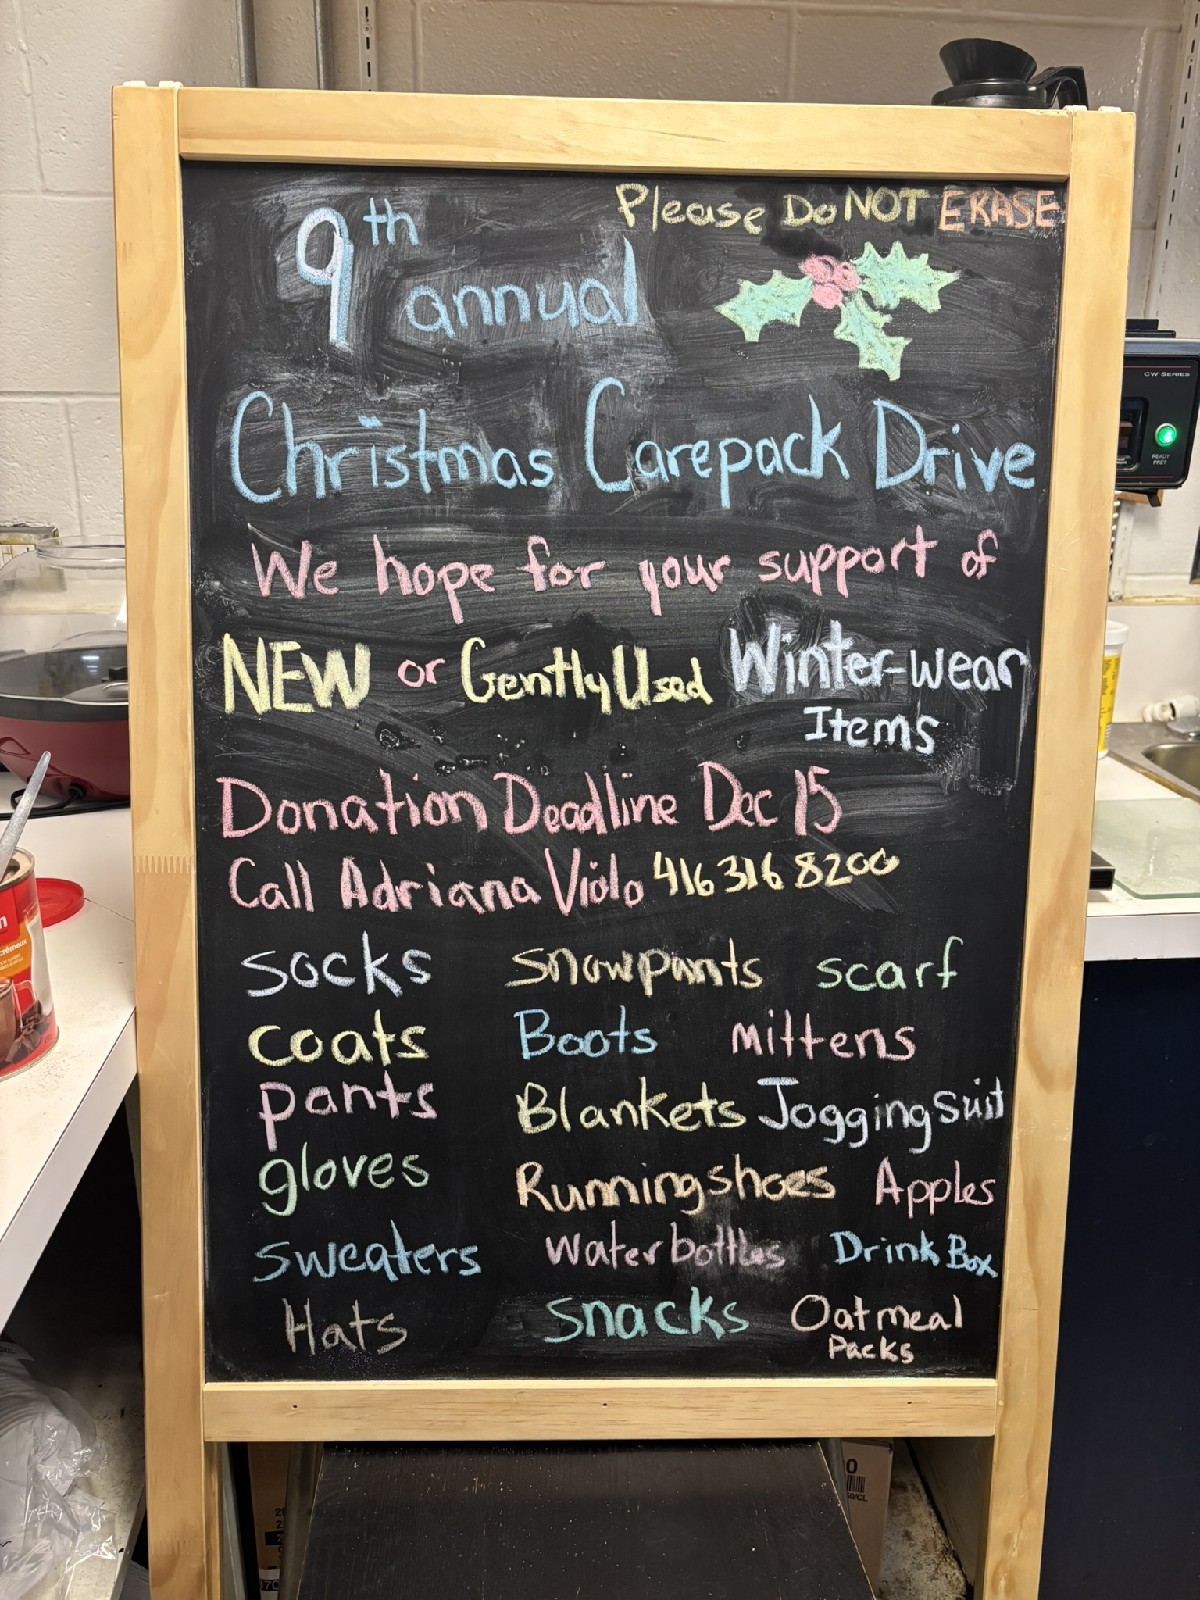 Please Do NOT ERASE
9th annual
Christmas Carepack Drive
We hope for your support of
NEW or Gently Used Winter-wear
Items
Donation Deadline Dec 15
Call Adriana Violo 416 316 8200
socks snowpants scarf
coats Boots mittens
pants Blankets Jogging suit
gloves Running shoes Apples
sweaters water bottles Drink Box
Hats snacks Oatmeal
Packs
CW SERIES
READY
PRET